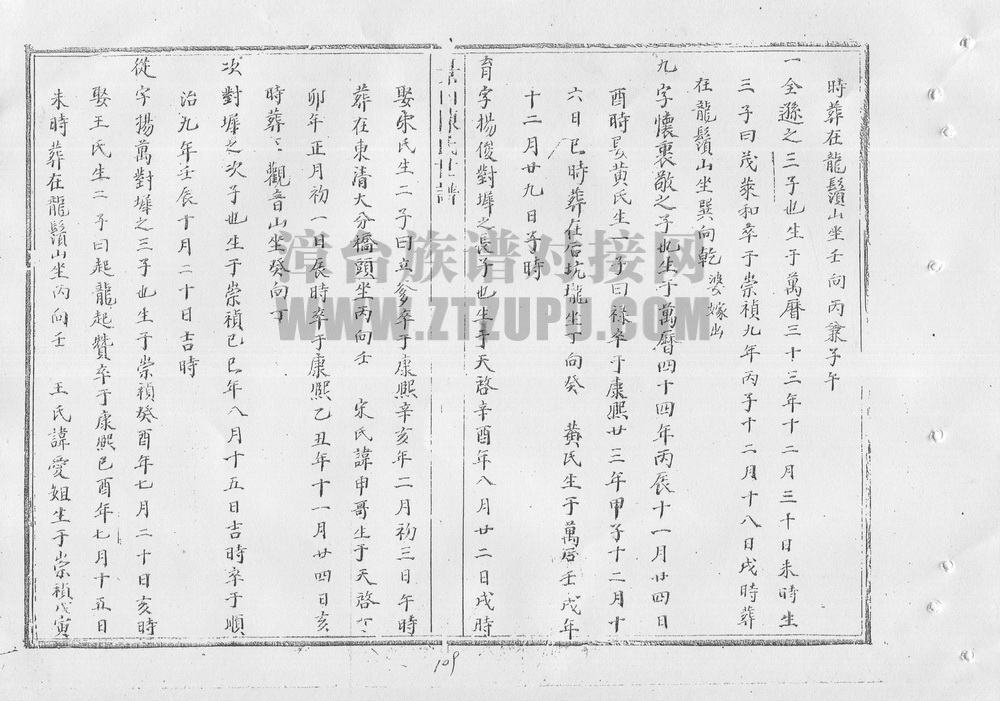 時葬在龍鬚山坐壬向丙兼子午
一全遜之三子也生于萬曆三十三年十二月三十日未時生
三子曰茂萊和卒于崇禎九年丙子十二月十八日戌時葬
在龍鬚山坐巽向乾婆嫁出
九字懷裏敬之子也生于萬曆四十四年丙辰十一月廿四日
酉時娶黃氏生一子曰祿卒于康熙廿三年甲子十二月十
六日巳時葬在后坑壠坐丁向癸 黃氏生于萬曆壬戌年
十二月廿九日子時
育字揚俊對墀之長子也生于天啓辛酉年八月廿二日戌時
陳氏世譜
娶宋氏生二子曰 卒于康熙辛亥年二月初三日午時
葬在東清大分橋頭坐丙向壬 宋氏諱申哥生于天啓丁
卯年正月初一日辰時卒于康熙乙丑年十一月廿四日亥
時葬 觀音山坐癸向丁
次對墀之次子也生于崇禎己巳年八月十五日吉時卒于順
治九年壬辰十月二十日吉時
從字揚萬對墀之三子也生于崇禎癸酉年七月二十日亥時
娶王氏生二子曰起龍起贊卒于康熙己酉年七月十五日
未時葬在龍鬚山坐丙向壬 王氏諱愛姐生于崇禎戊寅
109
漳台族谱对接网
WWW.ZTZUPU.COM